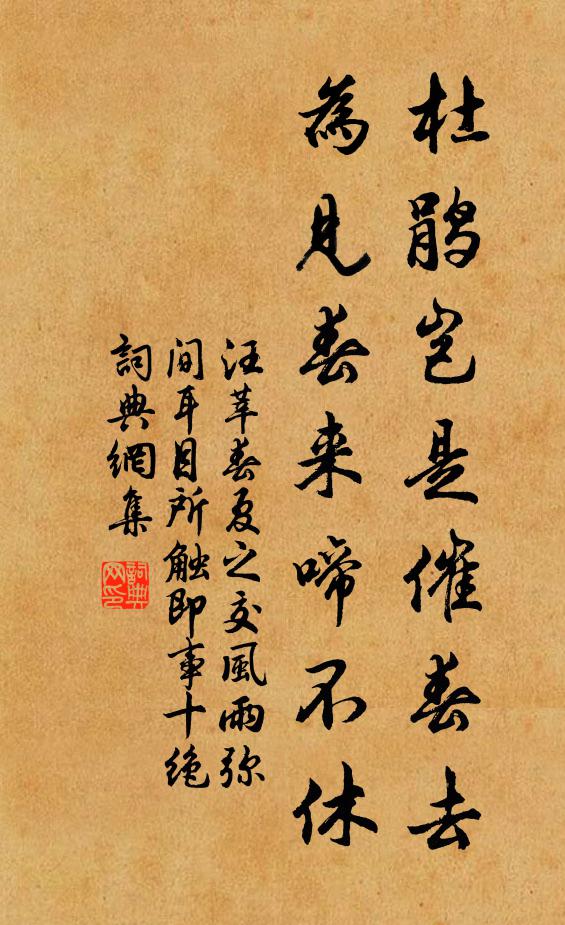 杜鹃岂是催春去
為見春来啼不休
汪莘春夏之交風雨弥
间耳目所触即事十绝
詞典網集
詞典网印